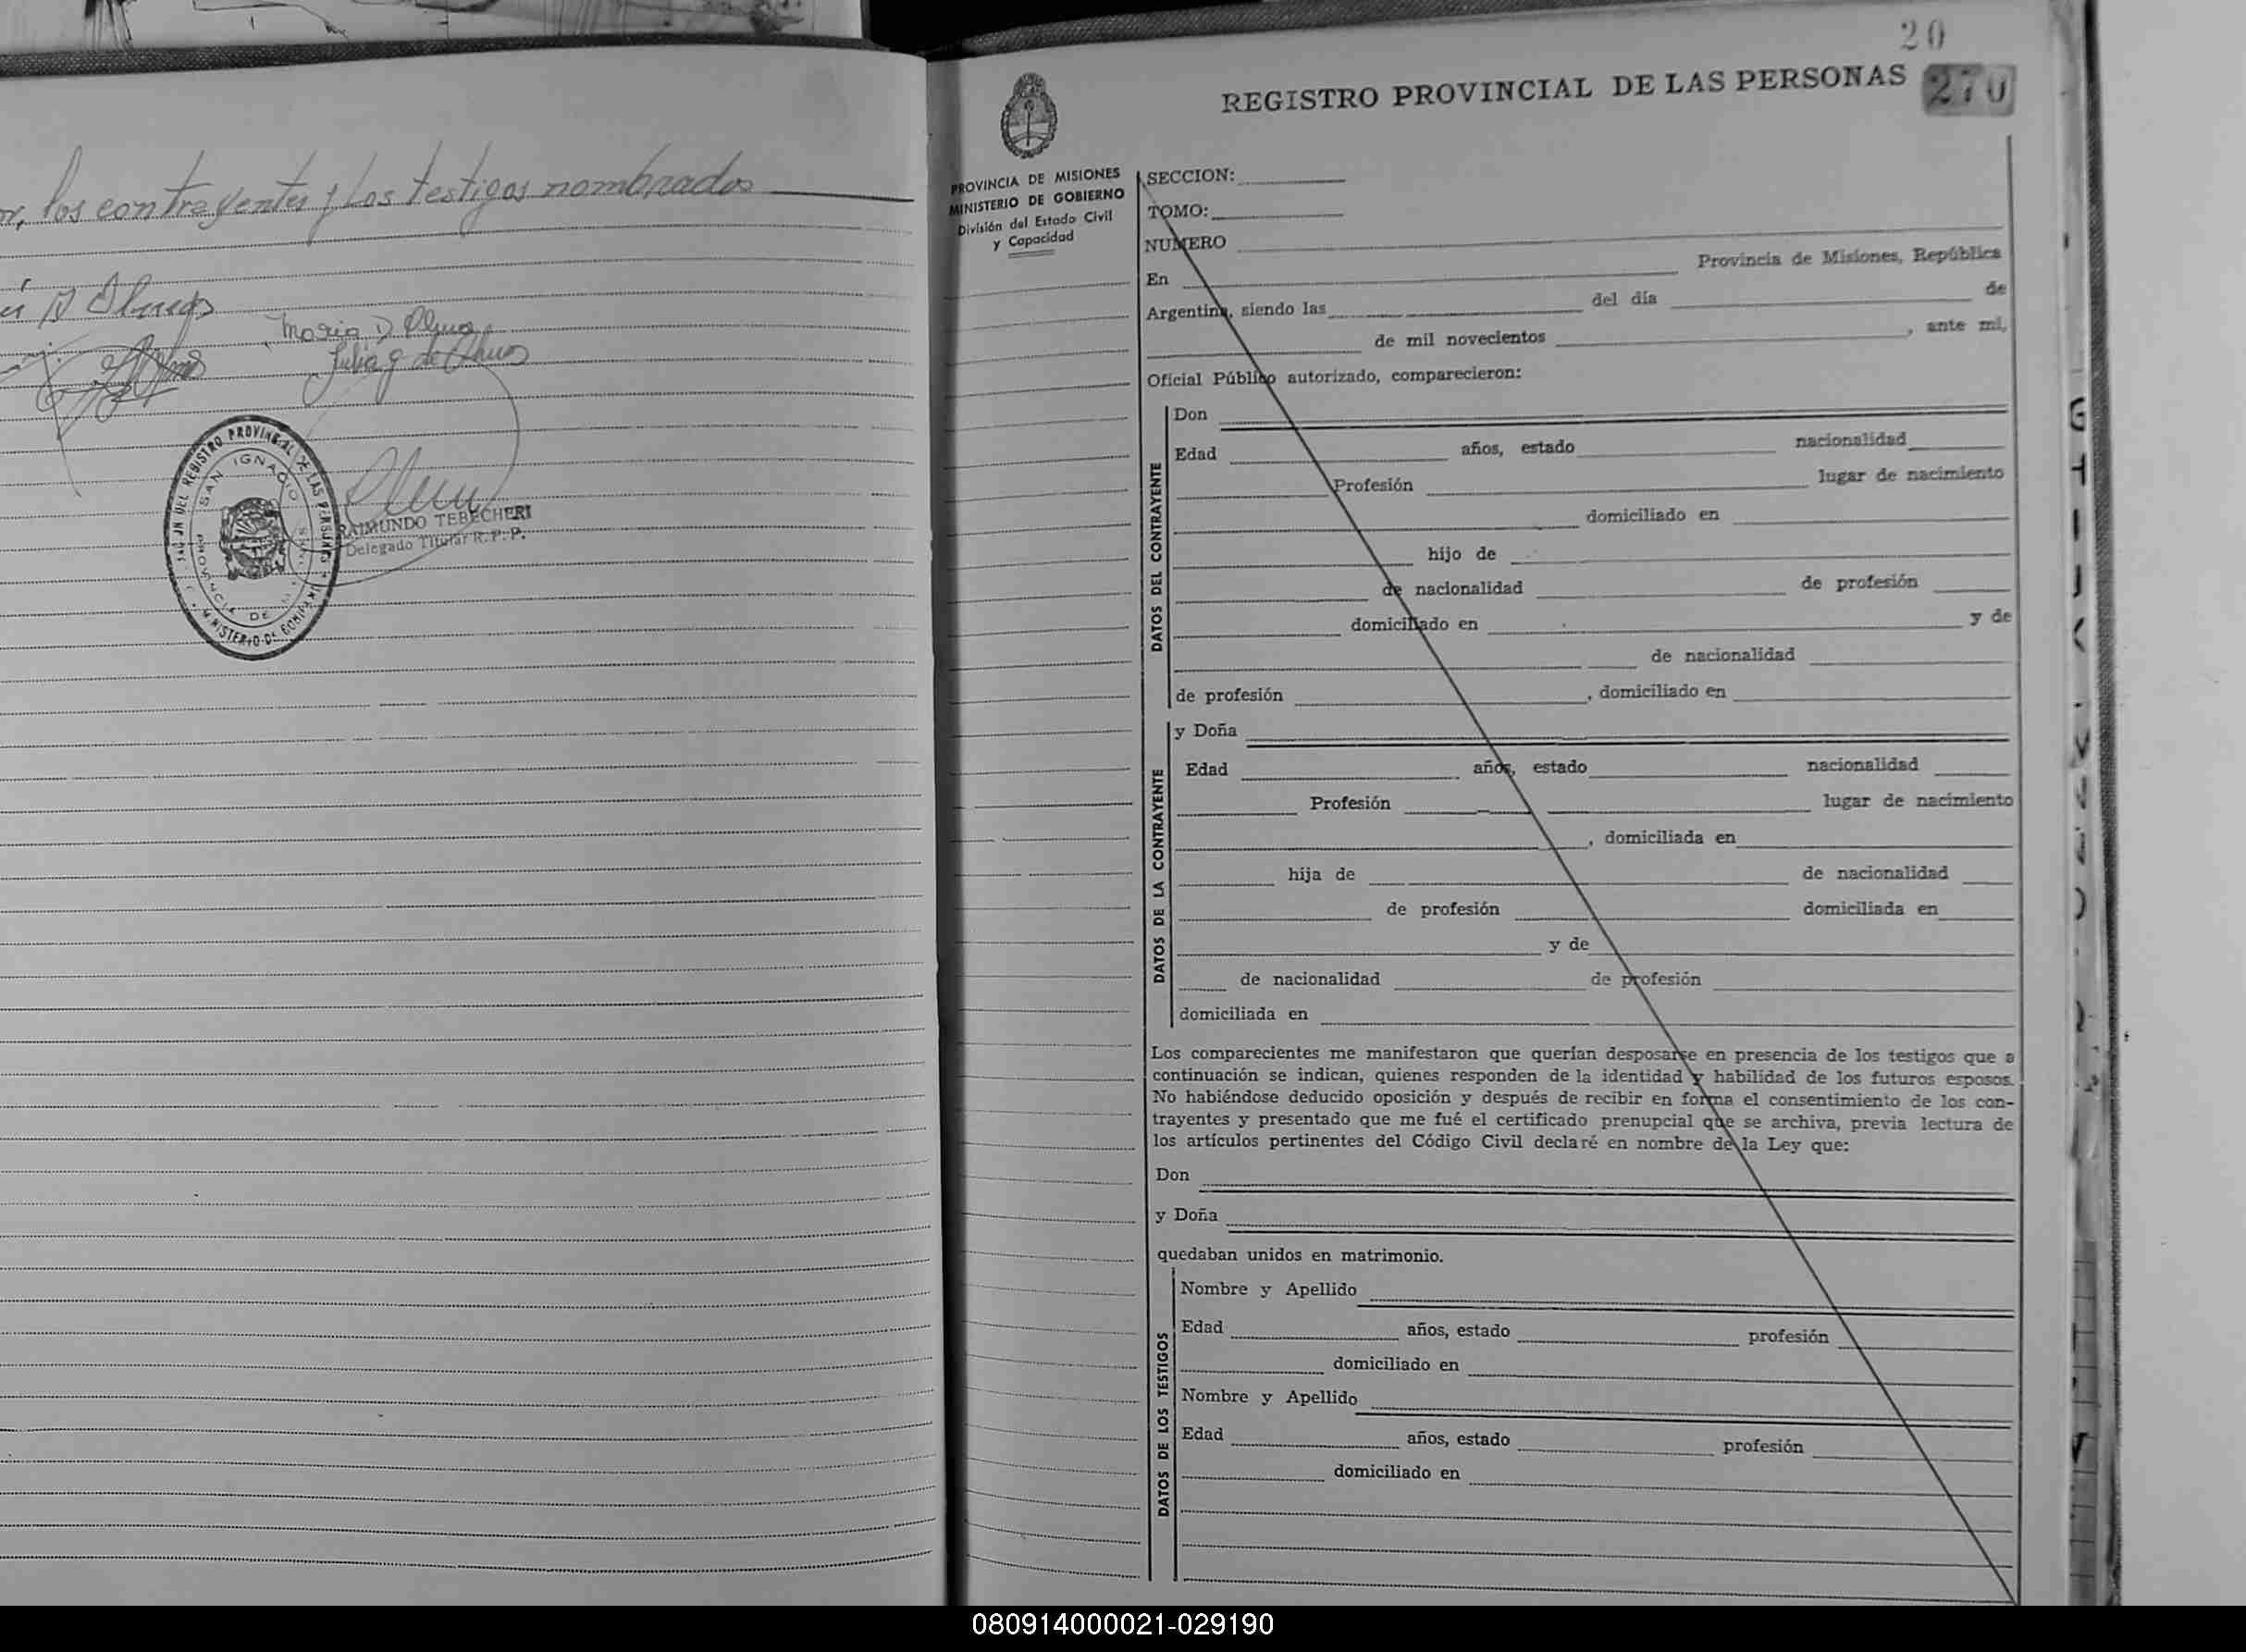 los contrayentes y los testigos nombrados
Maria D Olmo
Julia G de Olmo
REGISTRO PROVINCIAL DE LAS PERSONAS
SAN IGNACIO
PROVINCIA DE
MINISTERIO DE GOBIERNO
RAIMUNDO TEBECHERI
Delegado Titular R. P. P.
20
REGISTRO PROVINCIAL DE LAS PERSONAS 270
PROVINCIA DE MISIONES
MINISTERIO DE GOBIERNO
División del Estado Civil
y Capacidad
SECCION:
TOMO:
NUMERO
En Provincia de Misiones, República
Argentina, siendo las del día de
de mil novecientos , ante mi,
Oficial Público autorizado, comparecieron:
DATOS DEL CONTRAYENTE
Don
Edad años, estado nacionalidad
Profesión lugar de nacimiento
domiciliado en
hijo de
de nacionalidad de profesión
domiciliado en y de
de nacionalidad
de profesión , domiciliado en
DATOS DE LA CONTRAYENTE
y Doña
Edad años, estado nacionalidad
Profesión lugar de nacimiento
, domiciliada en
hija de de nacionalidad
de profesión domiciliada en
y de
de nacionalidad de profesión
domiciliada en
Los comparecientes me manifestaron que querían desposarse en presencia de los testigos que a
continuación se indican, quienes responden de la identidad y habilidad de los futuros esposos.
No habiéndose deducido oposición y después de recibir en forma el consentimiento de los con-
trayentes y presentado que me fué el certificado prenupcial que se archiva, previa lectura de
los artículos pertinentes del Código Civil declaré en nombre de la Ley que:
Don
y Doña
quedaban unidos en matrimonio.
DATOS DE LOS TESTIGOS
Nombre y Apellido
Edad años, estado profesión
domiciliado en
Nombre y Apellido
Edad años, estado profesión
domiciliado en
080914000021-029190